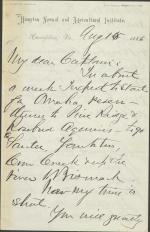 Hampton Normal and Agricultural Institute,
Hampton, Va. Aug 15 1886
My dear
In about
a week I expect to start
for Omaha reser-
Pine Ridge &
Rosebud Agencies
Santee Yankton,
Crow Creek up the
river to Bismark
Now my time is
short.
You will greatly